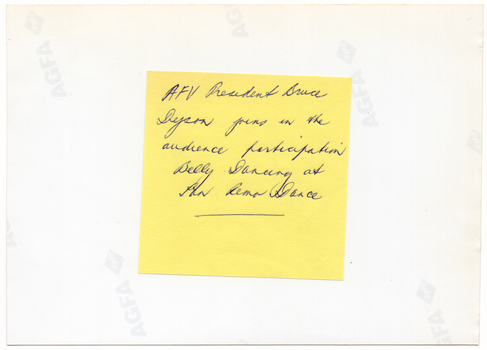 AFV President Bruce
Dyson joins in the
audience participation
Belly Dancing at
San Remo Dance
AGFA
AGFA
AGFA
AGFA
AGFA
AGFA